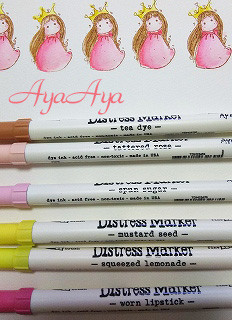 AyaAya
Distress Marker
— tea dye —
dye ink - acid free - non-toxic - made in USA
Distress Marker
— tattered rose —
dye ink - acid free - non-toxic - made in USA
— spun sugar —
dye ink - acid free - non-toxic - made in USA
Distress Marker
— mustard seed —
Distress Marker
— squeezed lemonade —
Distress Marker
— worn lipstick —